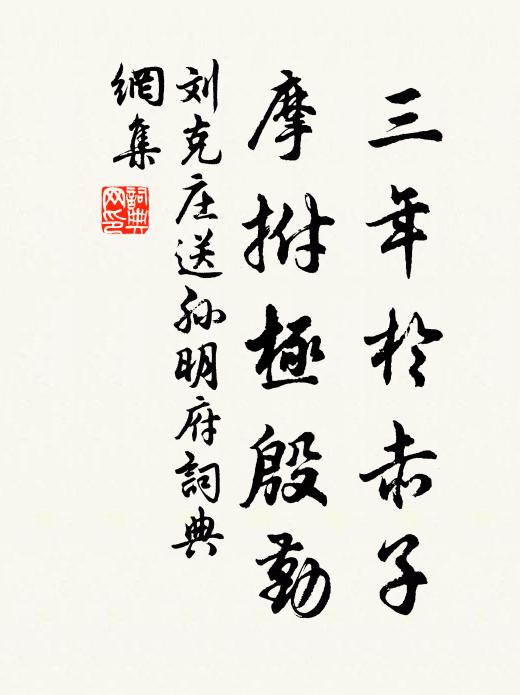 三年於赤子
摩拊極殷勤
刘克庄送孙明府詞典
網集
詞典網印